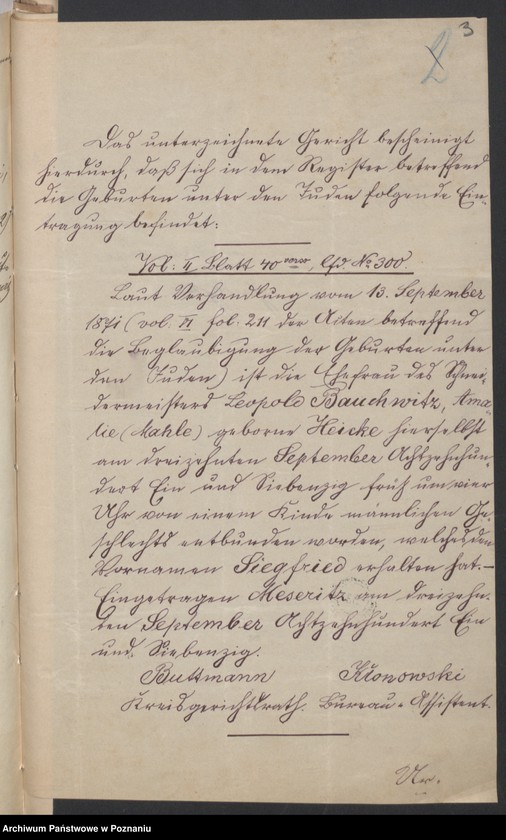 3
2
Das unterzeichnete Gericht bescheinigt
hierdurch, daß sich in dem Register betreffend
die Geburten unter den Juden folgende Ein-
tragung befindet:
Vol: II Blatt 40 verso, lfd. No 300.
Laut Verhandlung vom 13. September
1871 (vol. VI fol: 211 der Akten betreffend
die Beglaubigung der Geburten unter
den Juden) ist die Ehefrau des Schnei-
dermeisters Leopold Bauchwitz, Ama-
lie (Mahle) geborne Heicke hierselbst
am dreizehnten September Achtzehnhun-
dert Ein und Siebenzig früh um vier
Uhr von einem Kinde männlichen Ge-
schlechts entbunden worden, welches den
Vornamen Siegfried erhalten hat. —
Eingetragen Meseritz am dreizehn-
ten September Achtzehnhundert Ein
und Siebenzig.
Buttmann Klonowski
Kreisgerichtsrath. Bureau-Assistent.
Archiwum Państwowe w Poznaniu